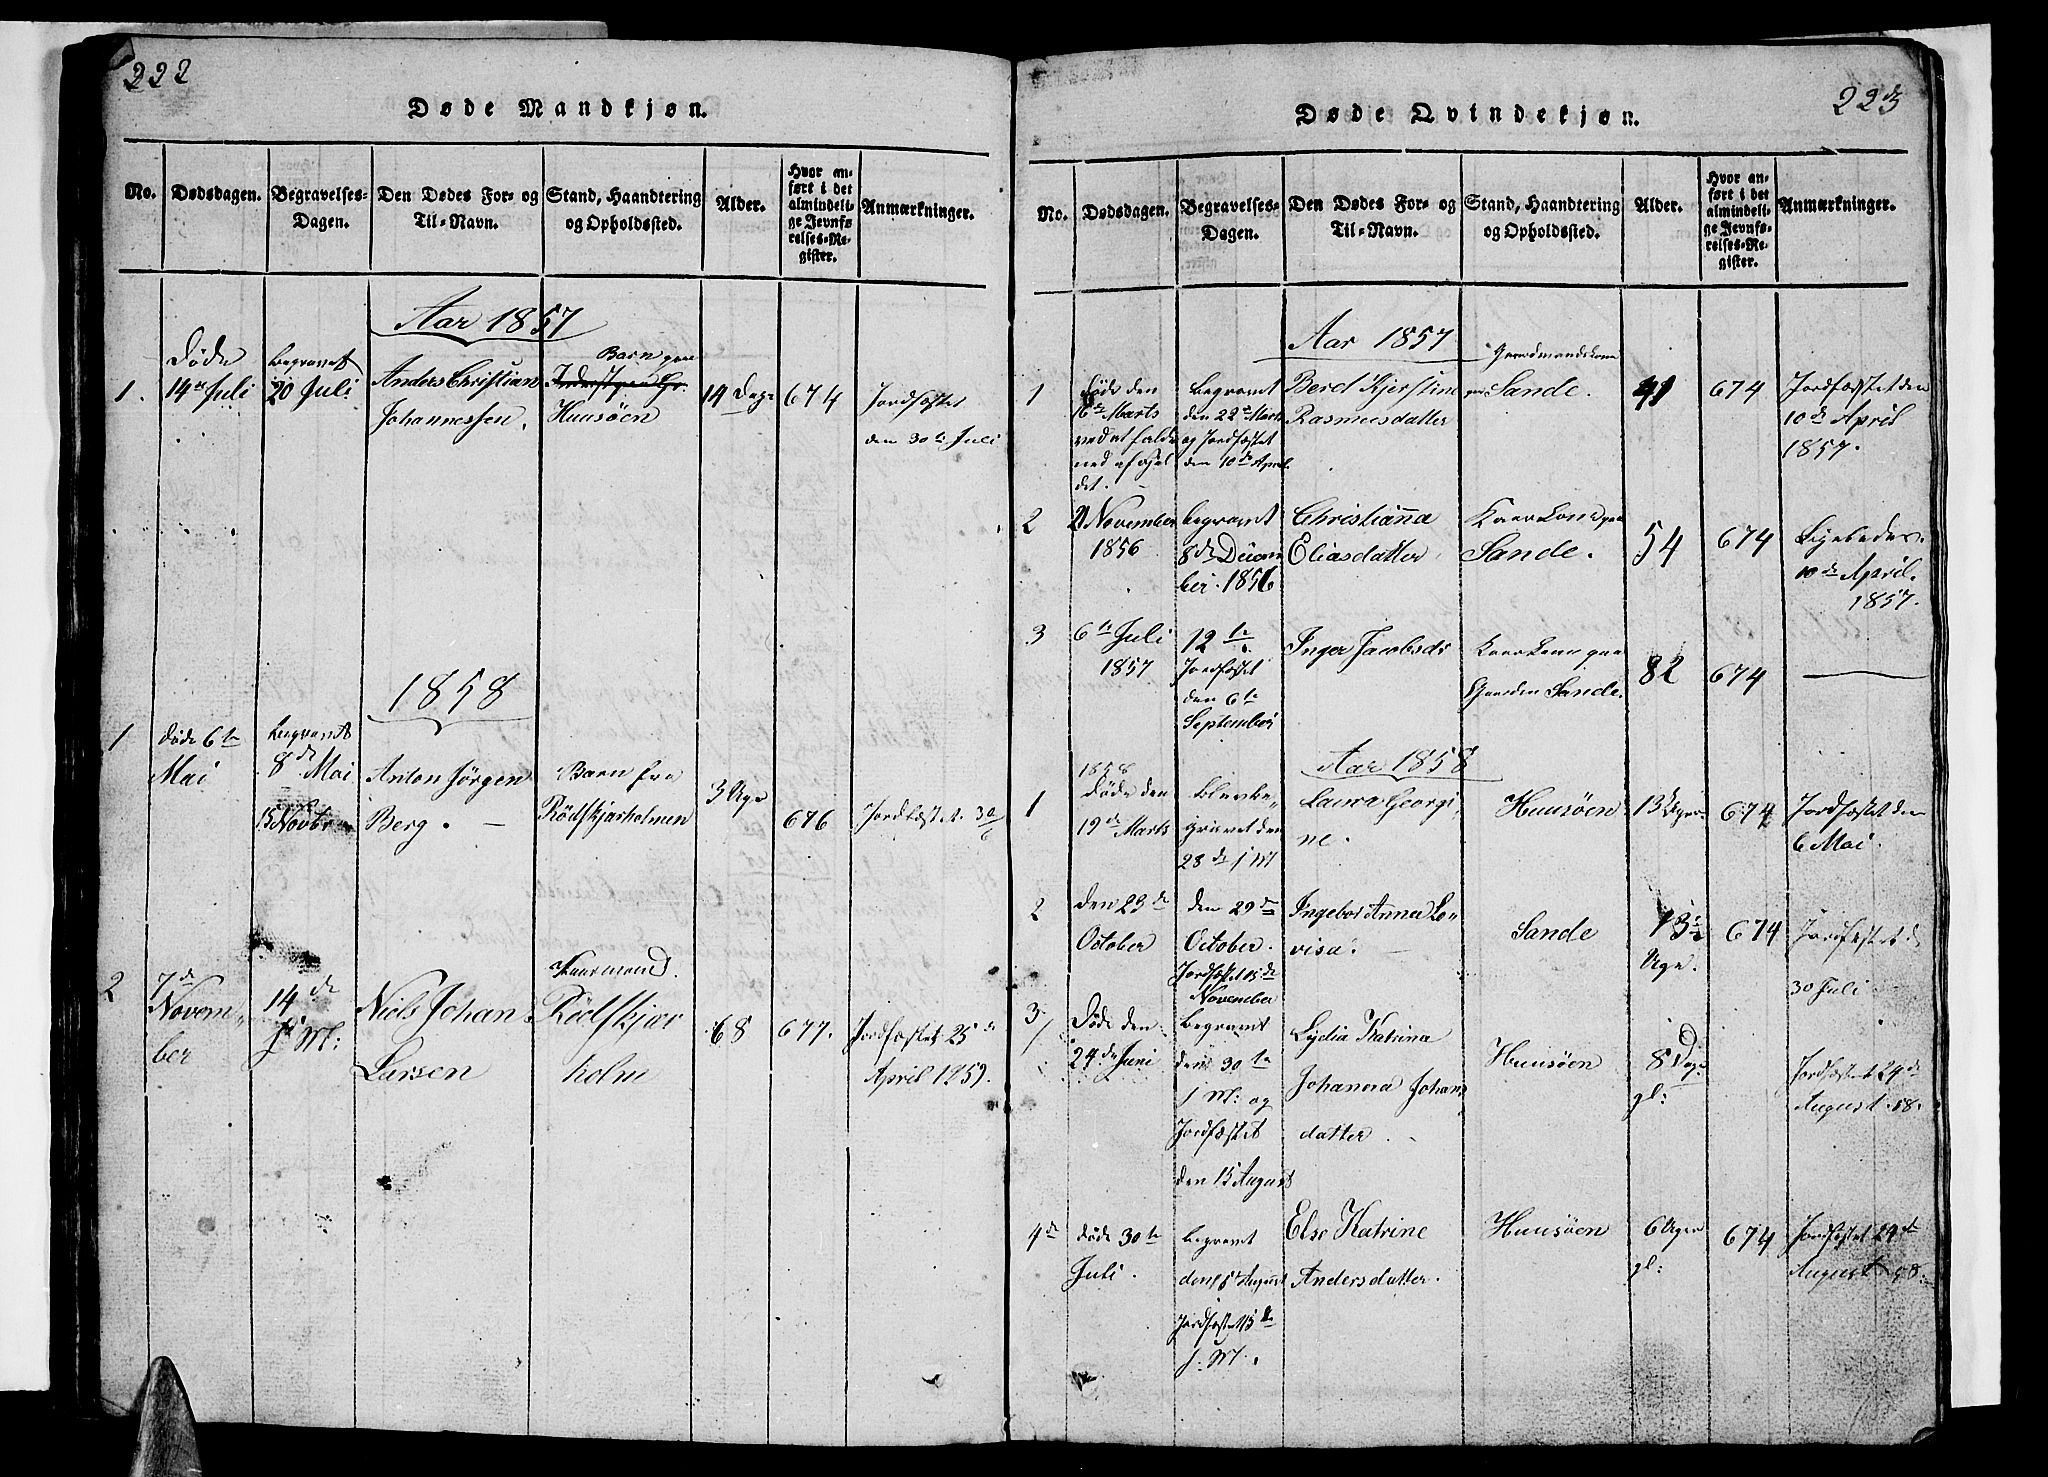 222
Døde Mandkjøn.
No.
Dødsdagen.
Begravelses-
Dagen.
Den Dødes For- og
Til-Navn.
Stand, Haandtering
og Opholdssted.
Alder.
Hvor an-
ført i det
almindeli-
ge Jevnfø-
relses-Re-
gister.
Anmærkninger.
Aar 1857
1.
Døde
14de Juli
begravet
20 Juli
Anders Christian
Johannessen.
Barn paa
Huusöen
14 Dage
674
Jordfæstet
den 30te Juli
1858
1
døde 6te
Mai
begravet
8de Mai
15 Novbr
Anton Jörgen
Berg. —
Barn fra
Rödskjærholmen
3 Uge
676
Jordfæstet 30/6
2
7de
Novem-
ber
14de
s. M:
Niels Johan
Larsen
Kaarmand.
Rödskjær
holm
68
677.
Jordfæstet 25de
April 1859.
223
Døde Qvindekjøn.
No.
Dødsdagen.
Begravelses-
Dagen.
Den Dødes For- og
Til-Navn.
Stand, Haandtering
og Opholdssted.
Alder.
Hvor an-
ført i det
almindeli-
ge Jevnfø-
relses-Re-
gister.
Anmærkninger.
Aar 1857
1
døde den
16de Marts
ved at falde
ned af Fjel
det.
begravet
den 22de Marts
og Jordfæstet
den 10de April.
Berd Kjerstine
Rasmusdatter
Gaardmandskone
paa Sande.
41
674
Jordfæstet den
10de April
1857.
2
21 November
1856
begravet
8de Decem
ber. 1856
Christianna
Eliasdatter
Kaarkone paa
Sande.
54
674
Ligeledes.
10de April.
1857.
3
6te Juli
1857
12te
Jordfæstet
den 6te
September
Inger Jacobsdr
Kaarkone paa
Gaarden Sande.
82
674
—
Aar 1858
1
1858
Døde den
19de Marts
blev be-
gravet den
28de s. M
Laura Georgi
ne.
Huusöen
13 Uger
674
Jordfæstet den
6 Mai.
2
den 23de
October
den 29de
October.
Jordfæstet 15de
November
Ingebor Anna Lo-
visa.
Sande
Uge.
674
Jordfæstet d
30 Juli
3
Døde den
24de Juni
begravet
den 30te
s. M: og
Jordfæstet
den 15 August
Lydia Katrina
Johanna Johans
datter.
Huusöen
8 Dage
gl:
Jordfæstet 29de
August 58.
4de
døde 30te
Juli.
begravet
den 5te August
Jordfæstet 15de
s. M.
Else Katrine
Andersdatter.
Huusöen
6 Uger
gl:
674
Jordfæstet 29de
August 58.